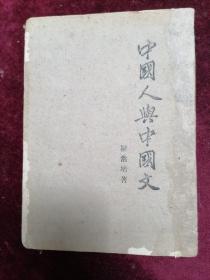 中國人與中國文
羅常培著